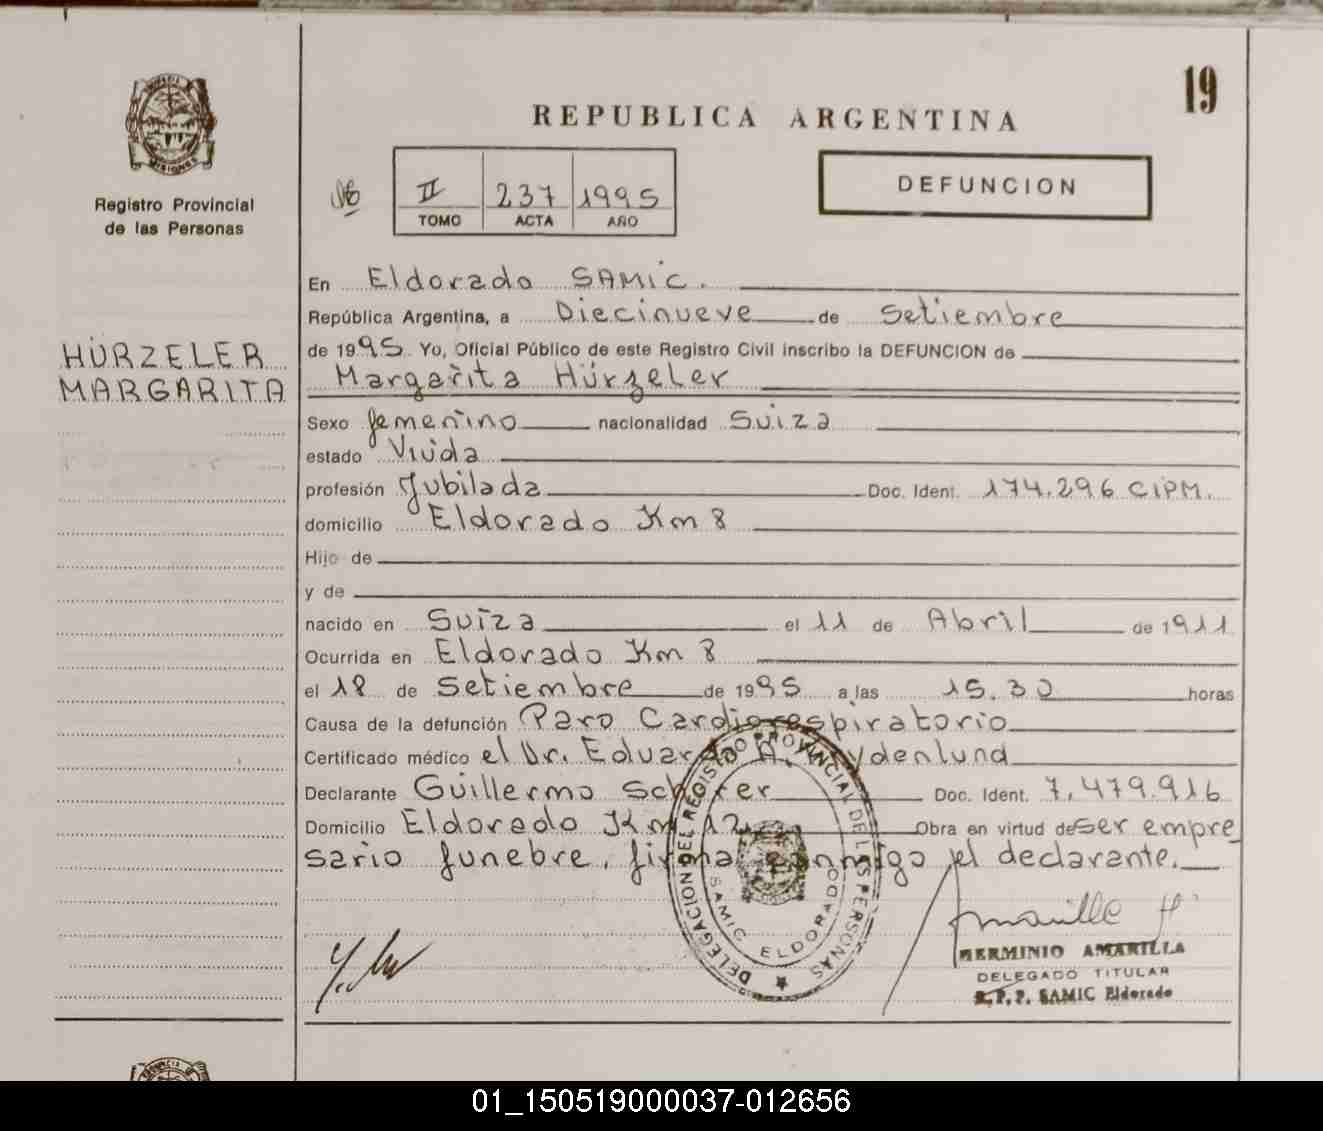 19
REPUBLICA ARGENTINA
MISIONES
Registro Provincial
de las Personas
II 237 1995
TOMO ACTA AÑO
DEFUNCION
En Eldorado SAMIC.
República Argentina, a Diecinueve de Setiembre
de 1995 Yo, Oficial Público de este Registro Civil inscribo la DEFUNCION de
HÜRZELER
MARGARITA
Margarita Hürzeler
Sexo femenino nacionalidad Suiza
estado Viuda
profesión Jubilada Doc. Ident. 174.296 CIPM.
domicilio Eldorado Km 8
Hijo de
y de
nacido en Suiza el 11 de Abril de 1911
Ocurrida en Eldorado Km 8
el 18 de Setiembre de 1995 a las 15.30 horas
Causa de la defunción Paro Cardiorespiratorio
Certificado médico el Dr. Eduardo A. Rydenlund
Declarante Guillermo Scherer Doc. Ident. 7.479.916
Domicilio Eldorado Km 12 Obra en virtud de ser empre
sario funebre. firma conmigo el declarante.
DELEGACION DEL REGISTRO PROVINCIAL DE LAS PERSONAS
SAMIC ELDORADO
HERMINIO AMARILLA
DELEGADO TITULAR
R.P.P. SAMIC Eldorado
01_150519000037-012656